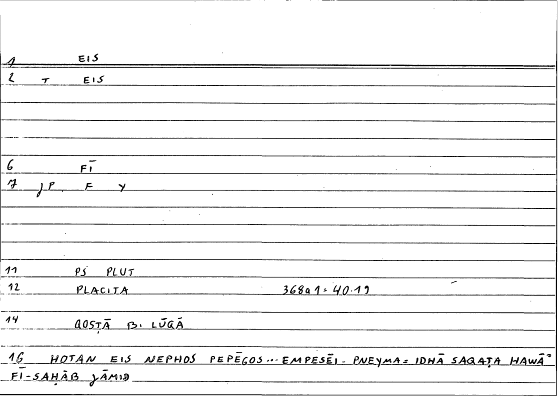 1 EIS
2 T EIS
6 FĪ
7 JP. F Y
11 PS PLUT
12 PLACITA 368a1 = 40.19
14 QOSṬĀ B. LŪQĀ
16 HOTAN EIS NEPHOS PEPĒGOS... EMPESĒI - PNEYMA = IDHĀ SAQAṬA HAWĀ'
FĪ-SAḤĀB JĀMID